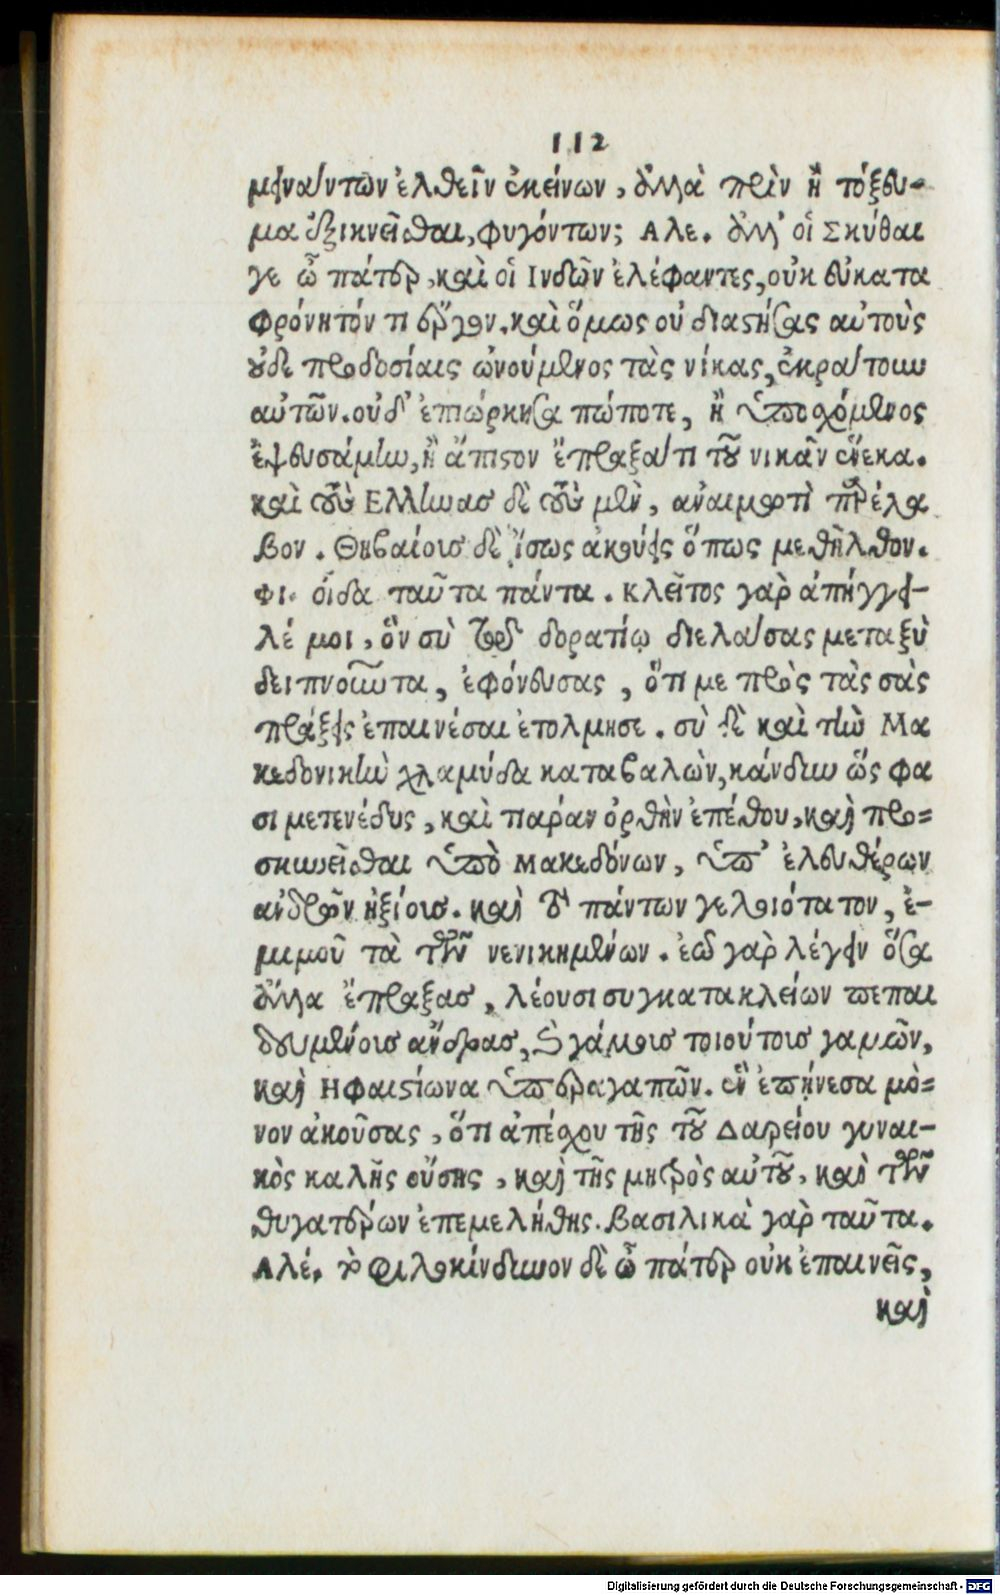 112
μεινάντων ἐλθεῖν ἐκείνων, ἀλλὰ πρὶν ἢ τόξευ-
μα ἐξικνεῖσθαι, φυγόντων; Αλε. ἀλλ' οἱ Σκύθαι
γε ὦ πάτερ, καὶ οἱ Ινδῶν ἐλέφαντες, οὐκ εὐκατα
φρόνητόν τι ἔργον. καὶ ὅμως οὐ διαστήσας αὐτοὺς
οὐδὲ προδοσίαις ὠνούμενος τὰς νίκας, ἐκράτουν
αὐτῶν. οὐδ' ἐπιώρκησα πώποτε, ἢ ὑποσχόμενος
ἐψευσάμην, ἢ ἄπιστον ἔπραξά τι τοῦ νικᾶν ἕνεκα.
καὶ τοὺς Ελληνας δὲ τοὺς μὲν, ἀναιμωτὶ παρέλα
βον. Θηβαίοις δὲ ἴσως ἀκούεις ὅπως μετῆλθον.
Φι. οἶδα ταῦτα πάντα. Κλεῖτος γὰρ ἀπήγγει-
λέ μοι, ὃν σὺ τῷ δορατίῳ διελάσας μεταξὺ
δειπνοῦντα, ἐφόνευσας, ὅτι με πρὸς τὰς σὰς
πράξεις ἐπαινέσαι ἐτόλμησε. σὺ δὲ καὶ τὴν Μα
κεδονικὴν χλαμύδα καταβαλὼν, κάνδυν ὥς φα
σι μετενέδυς, καὶ τιάραν ὀρθὴν ἐπέθου, καὶ προ=
σκυνεῖσθαι ὑπὸ Μακεδόνων, ὑπ' ἐλευθέρων
ἀνδρῶν ἠξίους. καὶ τὸ πάντων γελοιότατον, ἐ-
μιμοῦ τὰ τῶν νενικημένων. ἐῶ γὰρ λέγειν ὅσα
ἄλλα ἔπραξας, λέουσι συγκατακλείων πεπαι
δευμένους ἄνδρας, καὶ γάμους τοιούτους γαμῶν,
καὶ Ηφαιστίωνα ὑπεραγαπῶν. ἓν ἐπῄνεσα μό=
νον ἀκούσας, ὅτι ἀπέσχου τῆς τοῦ Δαρείου γυναι-
κὸς καλῆς οὔσης, καὶ τῆς μητρὸς αὐτοῦ, καὶ τῶν
θυγατέρων ἐπεμελήθης. βασιλικὰ γὰρ ταῦτα.
Αλέ. τὸ φιλοκίνδυνον δὲ ὦ πάτερ οὐκ ἐπαινεῖς,
καὶ
Digitalisierung gefördert durch die Deutsche Forschungsgemeinschaft - DFG